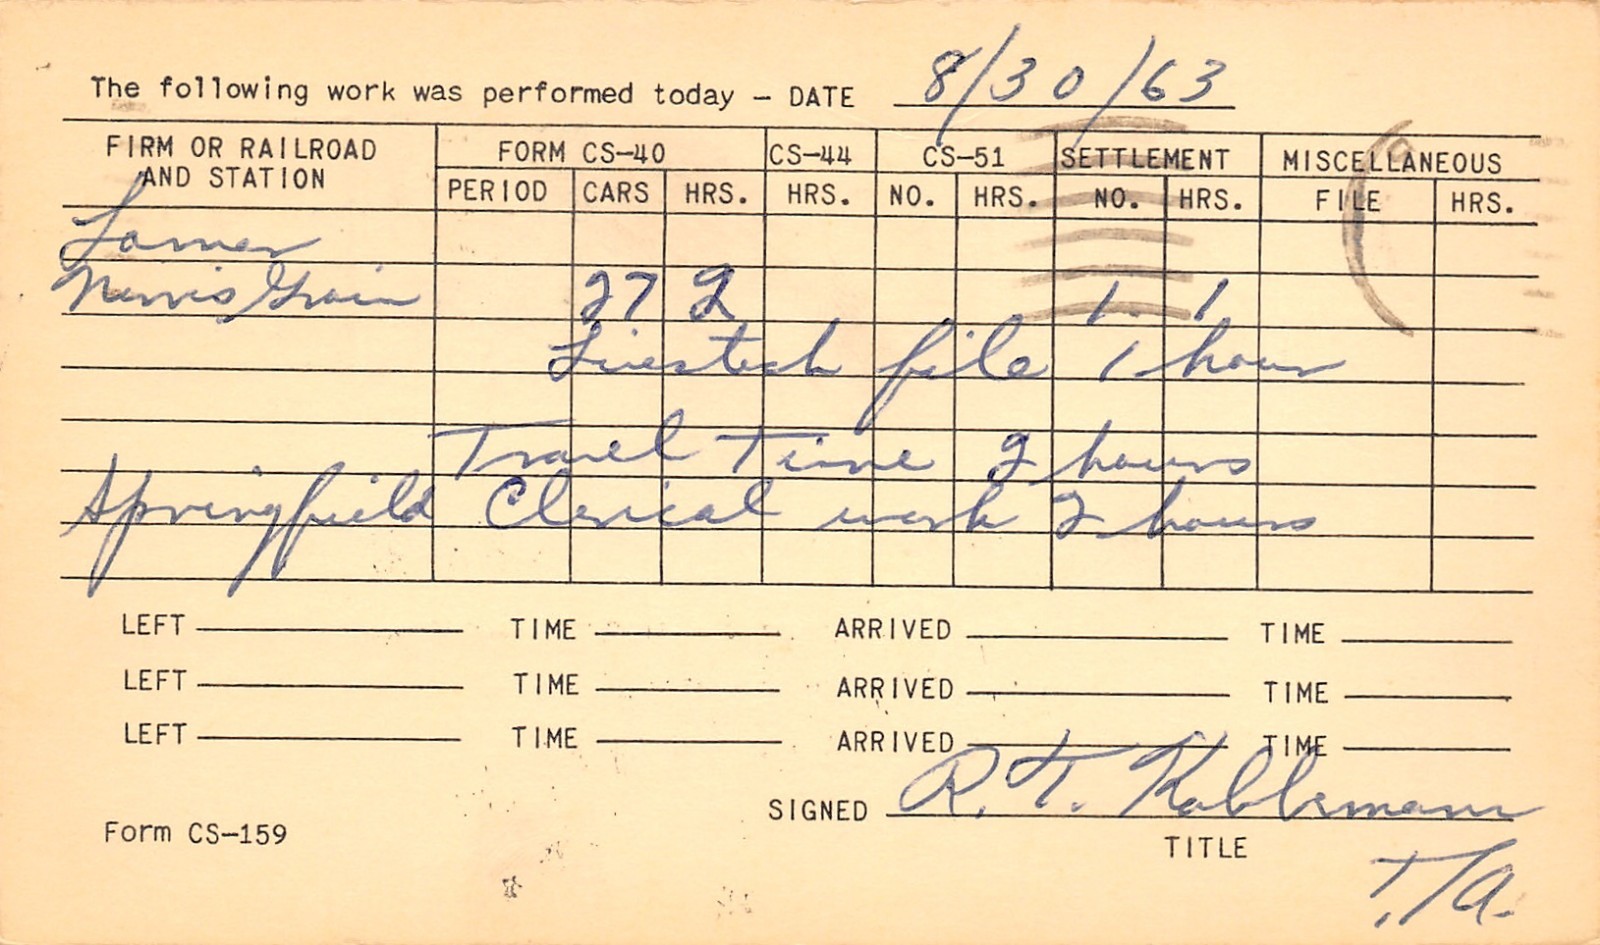 The following work was performed today — DATE 8/30/63
FIRM OR RAILROAD AND STATION FORM CS-40 CS-44 CS-51 SETTLEMENT MISCELLANEOUS
PERIOD CARS HRS. HRS. NO. HRS. NO. HRS. FILE HRS.
Lamar
Norris Grain 27 2 1 1
Livestock file 1 hour
Travel Time 2 hours
Springfield Clerical work 2 hours
LEFT TIME ARRIVED TIME
LEFT TIME ARRIVED TIME
LEFT TIME ARRIVED TIME
SIGNED R. T.
Form CS-159
TITLE
T/A.